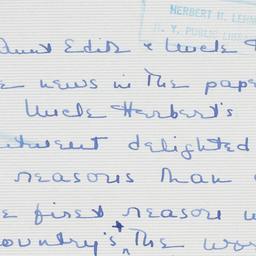 HERBERT H. LEHM
N. Y. PUBLIC LIBRA
Aunt Edith & Uncle
news in The pape
Uncle Herbert's
delighted
reasons Than
first reason w
ountry's The wor